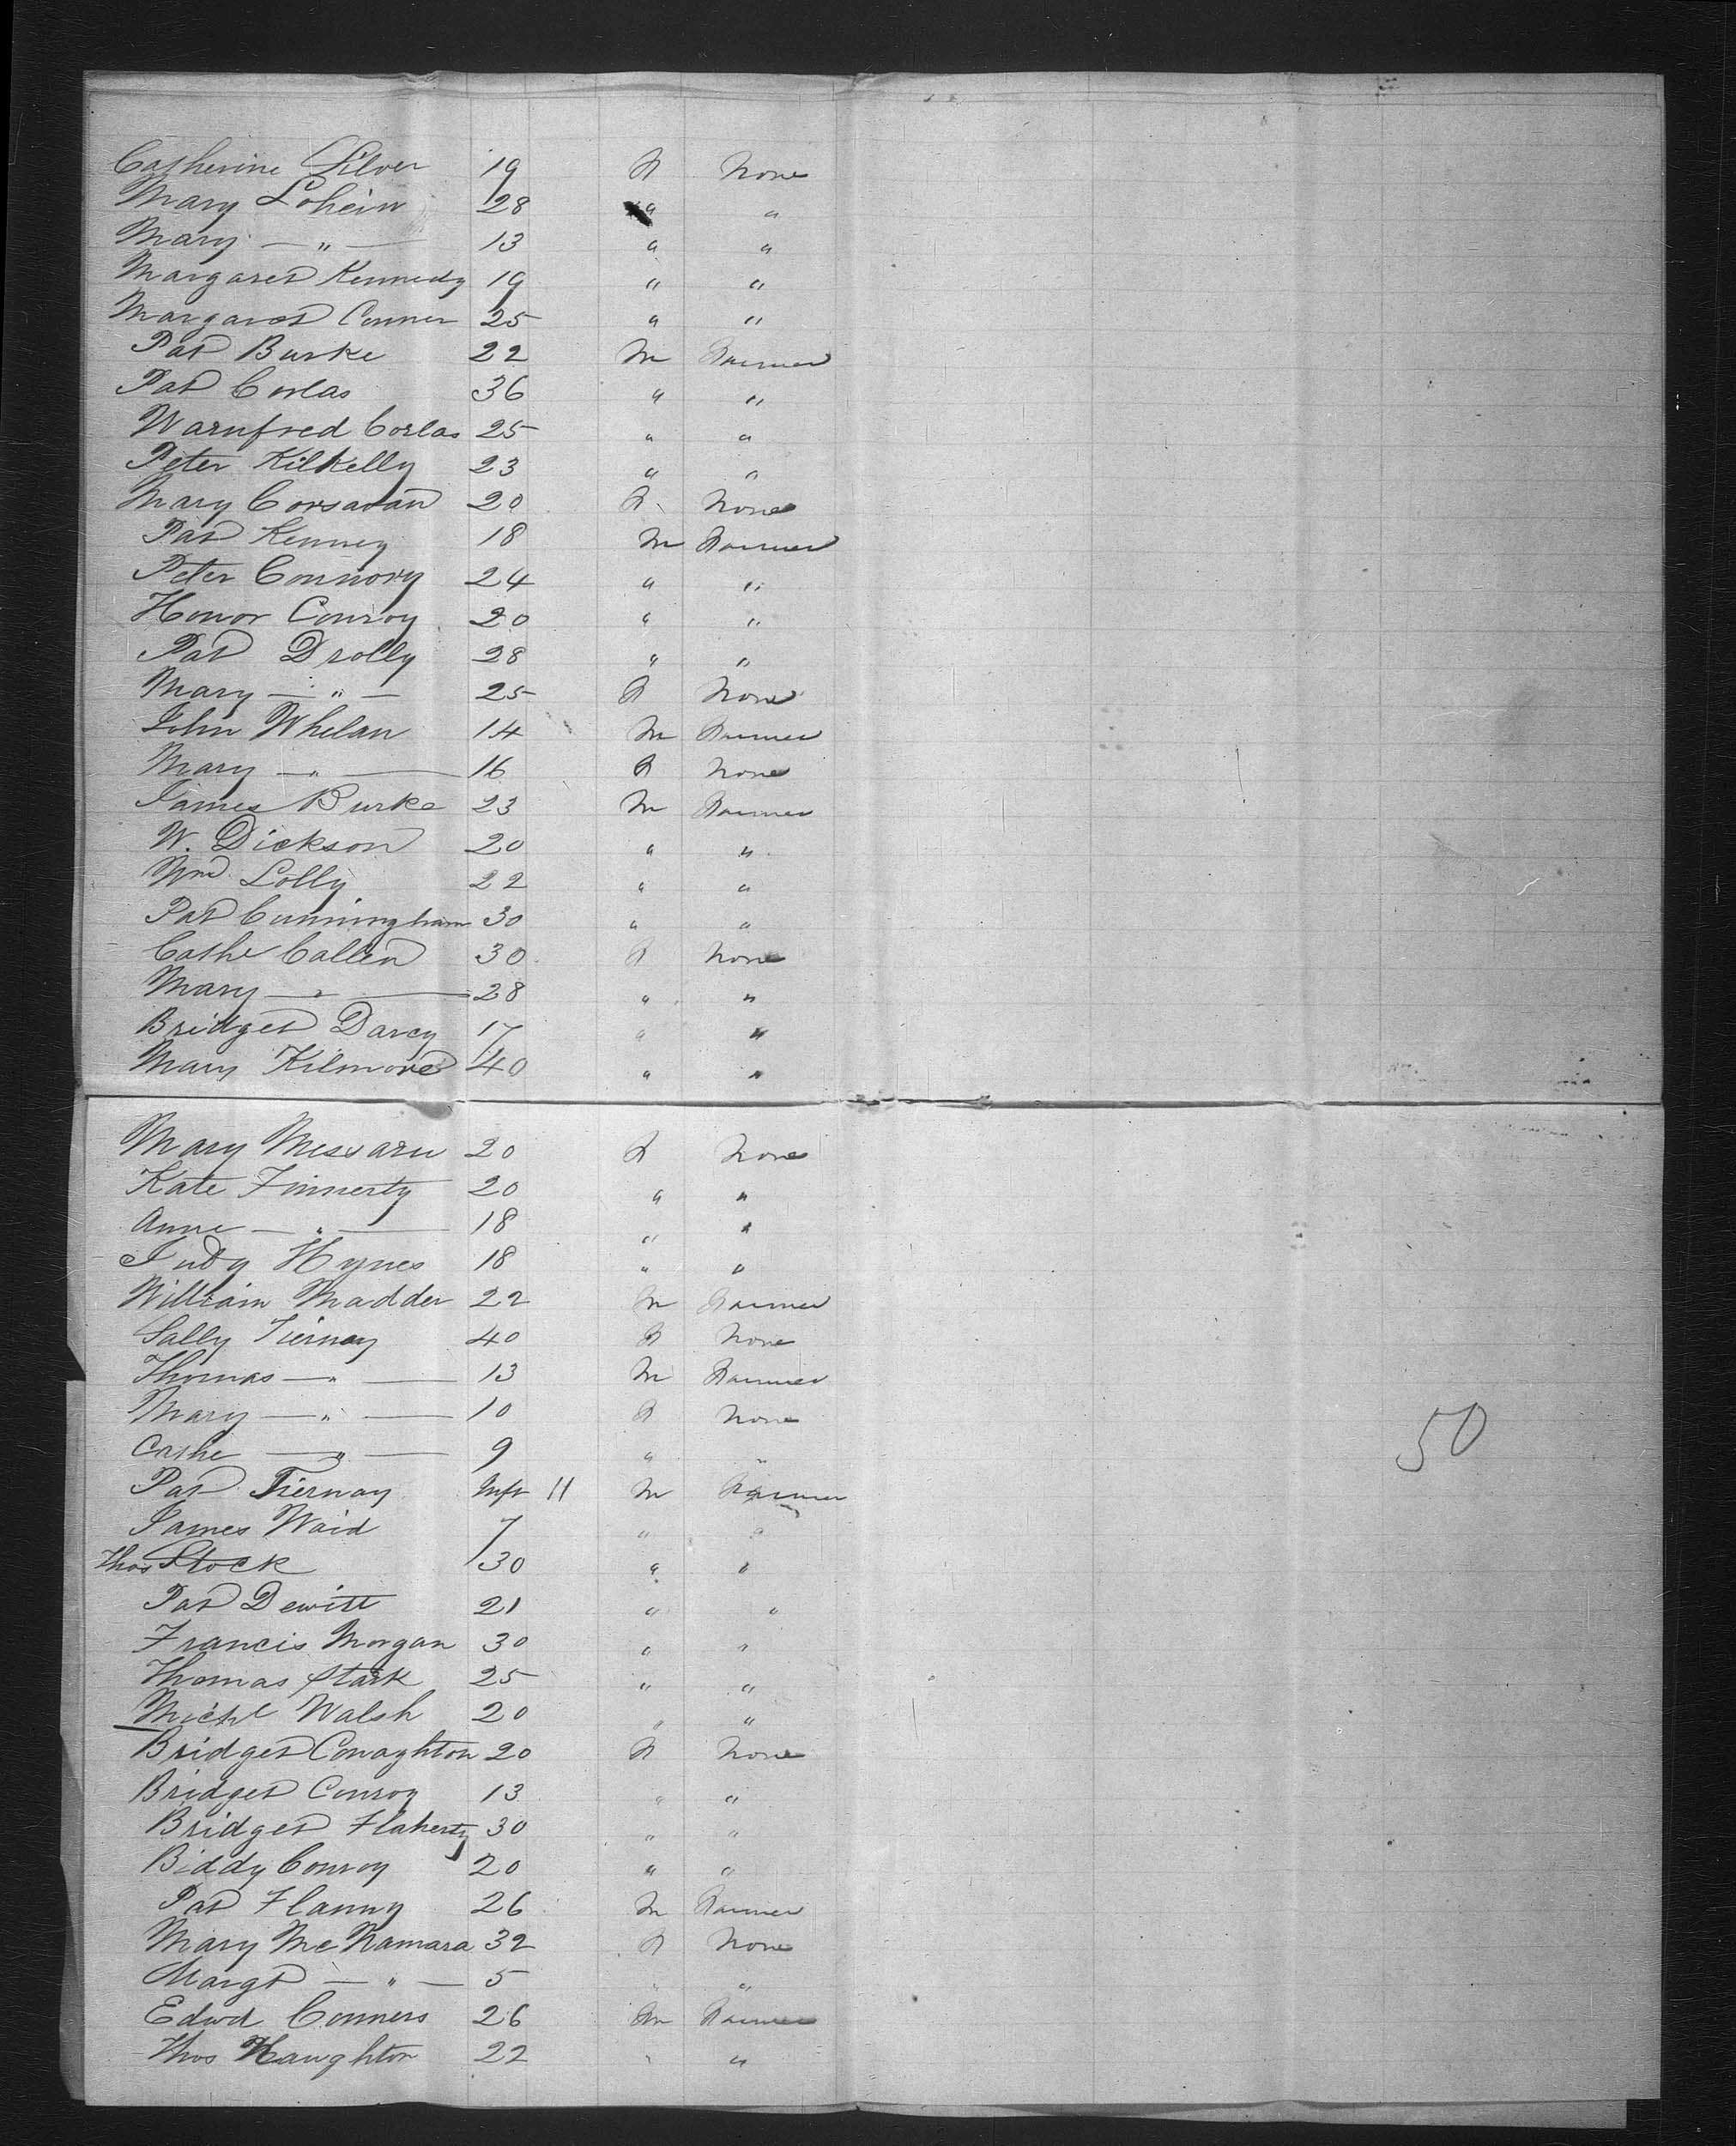 Catherine Silver 19 F None
Mary Lohein 28 " "
Mary — " — 13 " "
Margaret Kennedy 19 " "
Margaret Conner 25 " "
Pat Burke 22 M Farmer
Pat Corlas 36 " "
Warnfred Corlas 25 " "
Peter Kilkelly 23 " "
Mary Corsavan 20 F None
Pat Kenney 18 M Farmer
Peter Connory 24 " "
Honor Conroy 20 " "
Pat Drolly 28 " "
Mary — " — 25 F None
John Whelan 14 M Farmer
Mary — " — 16 F None
James Burke 23 M Farmer
W. Dickson 20 " "
Wm Lolly 22 " "
Pat Cunningham 30 " "
Cathe Callen 30 F None
Mary — " — 28 " "
Bridget Darcy 17 " "
Mary Kilmore 40 " "
Mary 20 F None
Kate Finnerty 20 " "
Anne — " — 18 " "
Judy Hynes 18 " "
William Madden 22 M Farmer
Sally Tierney 40 F None
Thomas — " — 13 M Farmer
Mary — " — 10 F None
Cathe — " — 9 " "
50
Pat Tiernay Inft 11 M Farmer
James Waid 7 " "
Thos Stock 30 " "
Pat Dewitt 21 " "
Francis Morgan 30 " "
Thomas Stark 25 " "
Michl Walsh 20 " "
Bridget Conaghton 20 F None
Bridget Conroy 13 " "
Bridget Flaherty 30 " "
Biddy Conroy 20 " "
Pat Flanny 26 M Farmer
Mary McNamara 32 F None
Margt — " — 5 " "
Edwd Conners 26 M Farmer
Thos Haughton 22 " "